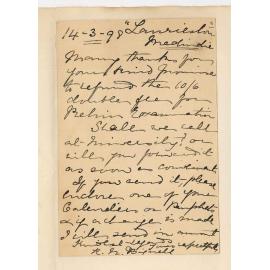 14-3-98 "Lauriston"
Medindie
Many thanks for
your kind promise
to refund the 10/6
double fee for
Prelim Examination
Shall we call
at University? or
will you forward it
as soon as convenient
If you send it, please
enclose one of your
Calendars or Pamphlets
if a charge is made
I will send in amount